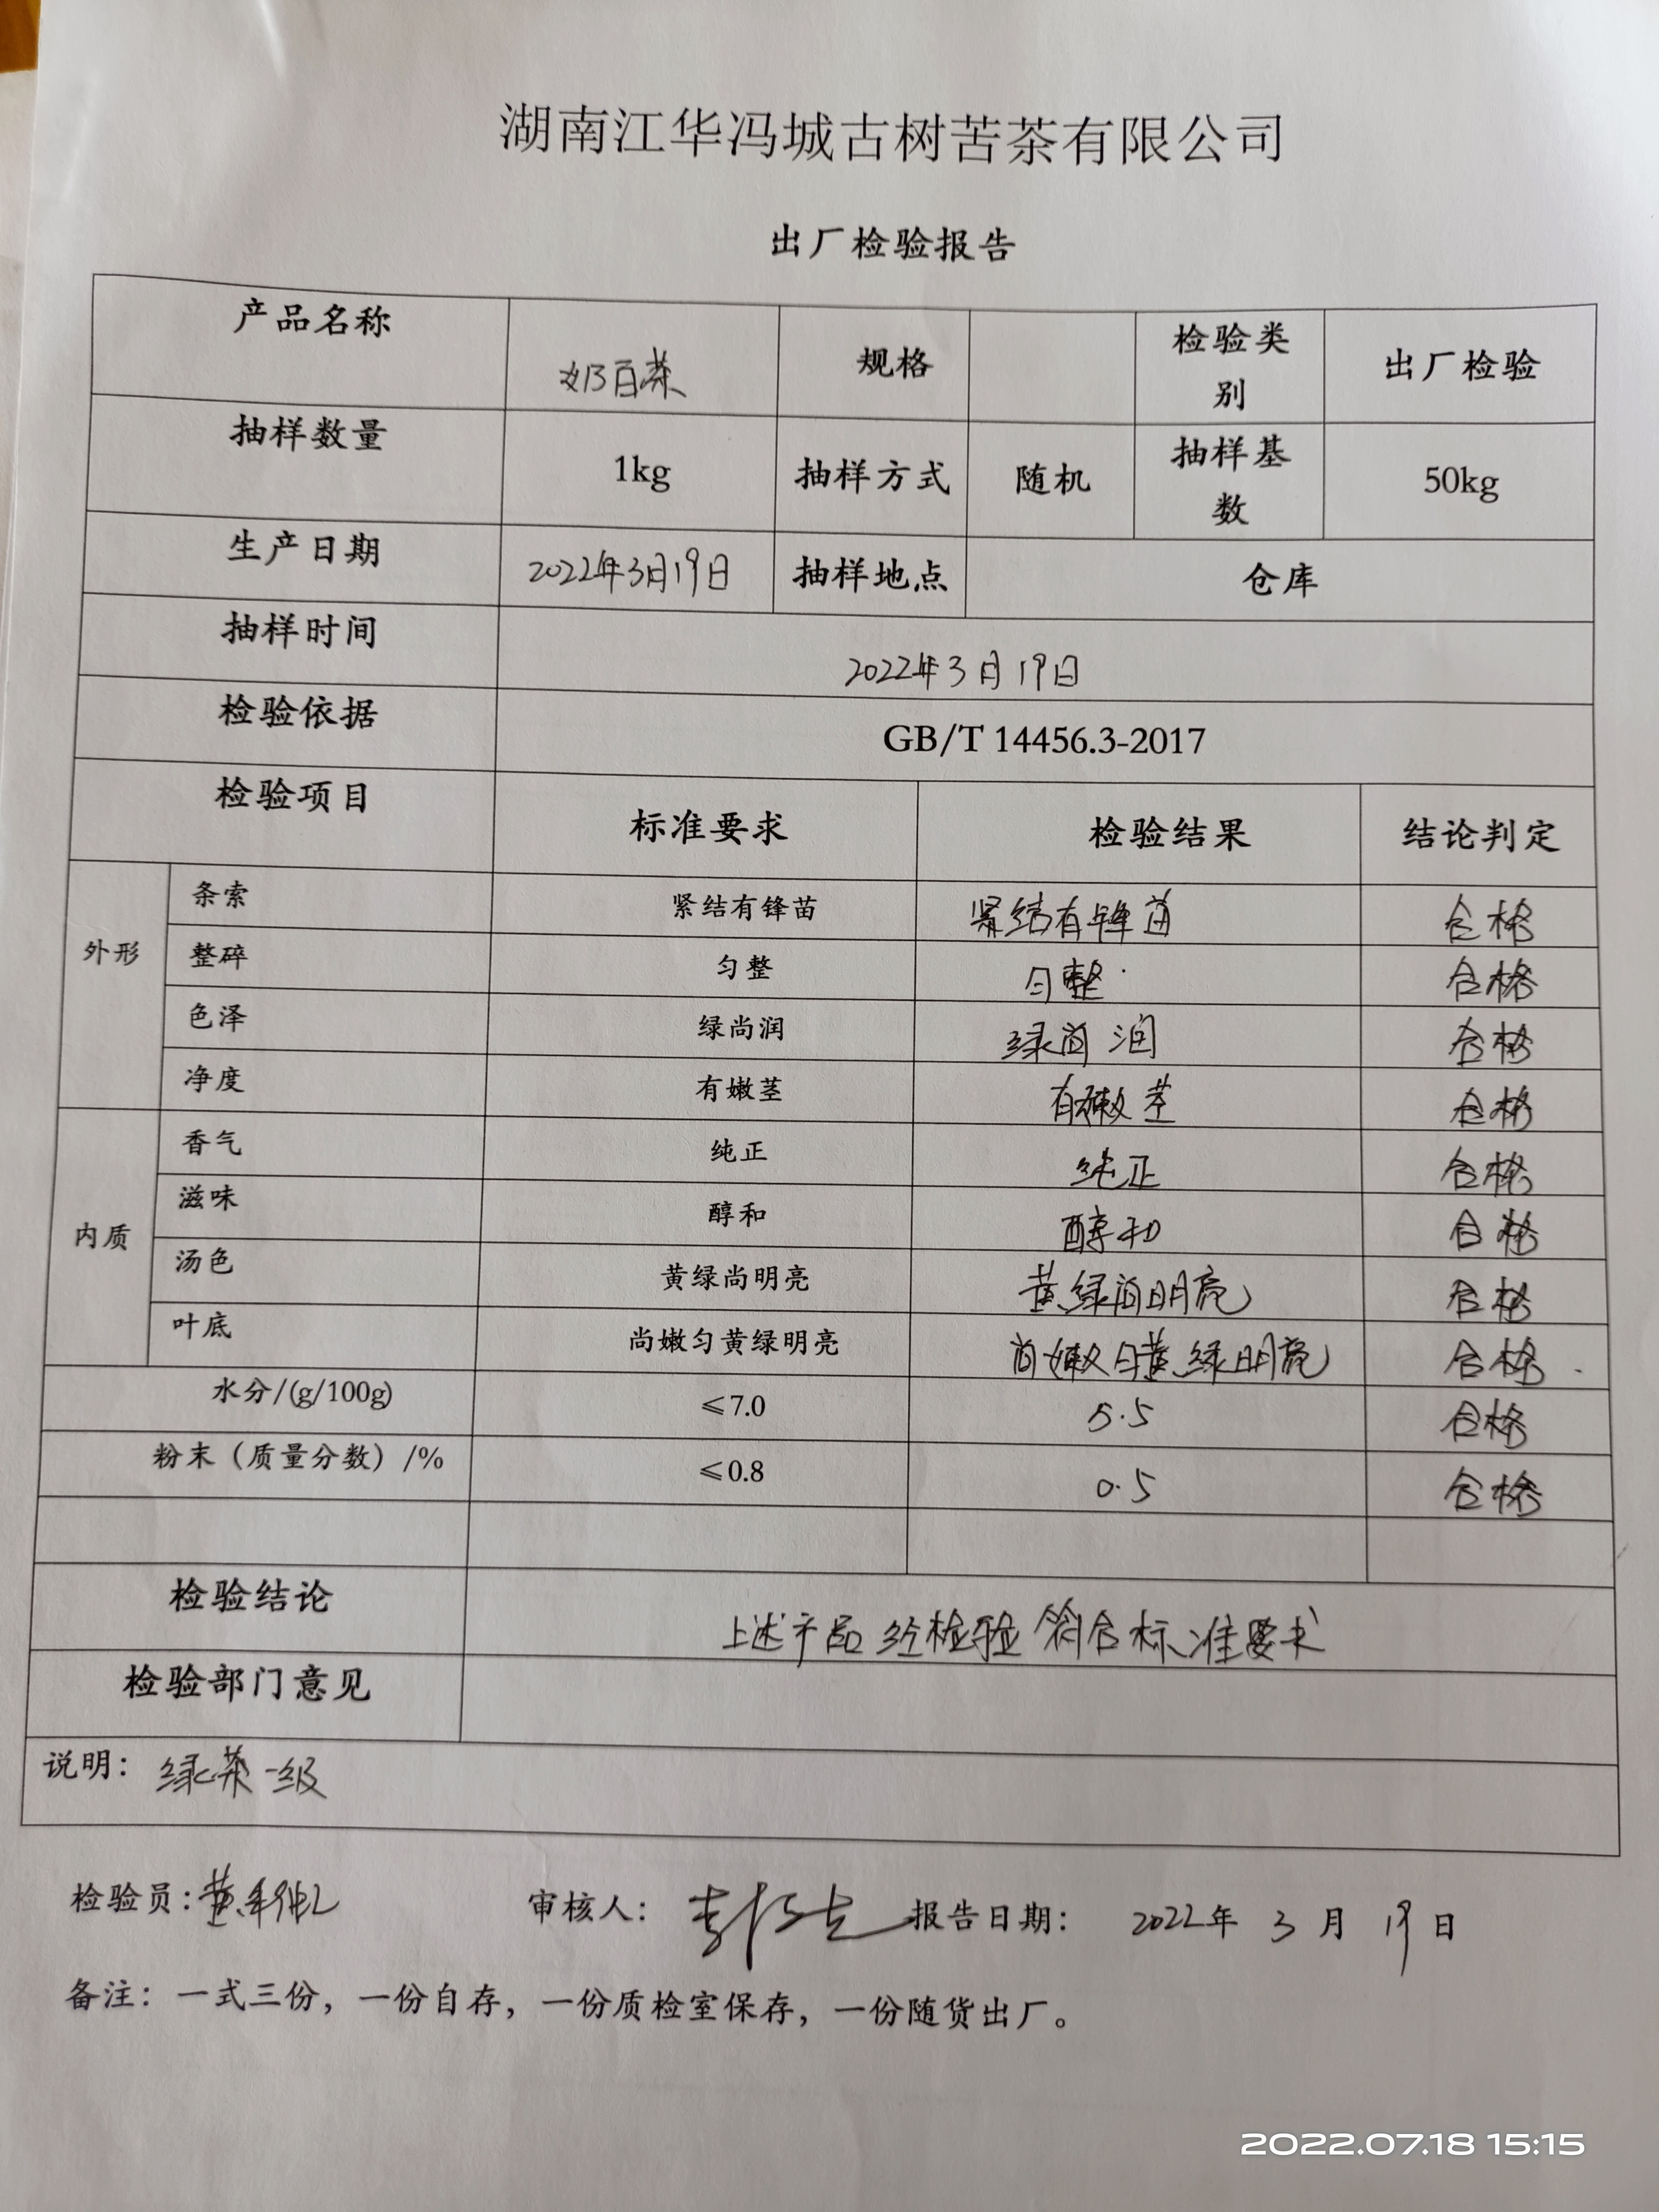 湖南江华冯城古树苦茶有限公司
出厂检验报告
产品名称 奶百茶 规格 检验类别 出厂检验
抽样数量 1kg 抽样方式 随机 抽样基数 50kg
生产日期 2022年3月19日 抽样地点 仓库
抽样时间 2022年3月19日
检验依据 GB/T 14456.3-2017
检验项目 标准要求 检验结果 结论判定
外形 条索 紧结有锋苗 紧结有锋苗 合格
整碎 匀整 匀整 合格
色泽 绿尚润 绿尚润 合格
净度 有嫩茎 有嫩茎 合格
内质 香气 纯正 纯正 合格
滋味 醇和 醇和 合格
汤色 黄绿尚明亮 黄绿尚明亮 合格
叶底 尚嫩匀黄绿明亮 尚嫩匀黄绿明亮 合格
水分/(g/100g) ≤7.0 5.5 合格
粉末（质量分数）/% ≤0.8 0.5 合格
检验结论 上述产品经检验符合标准要求
检验部门意见
说明：绿茶一级
检验员： 审核人： 报告日期： 2022年 3月 19日
备注：一式三份，一份自存，一份质检室保存，一份随货出厂。
2022.07.18 15:15